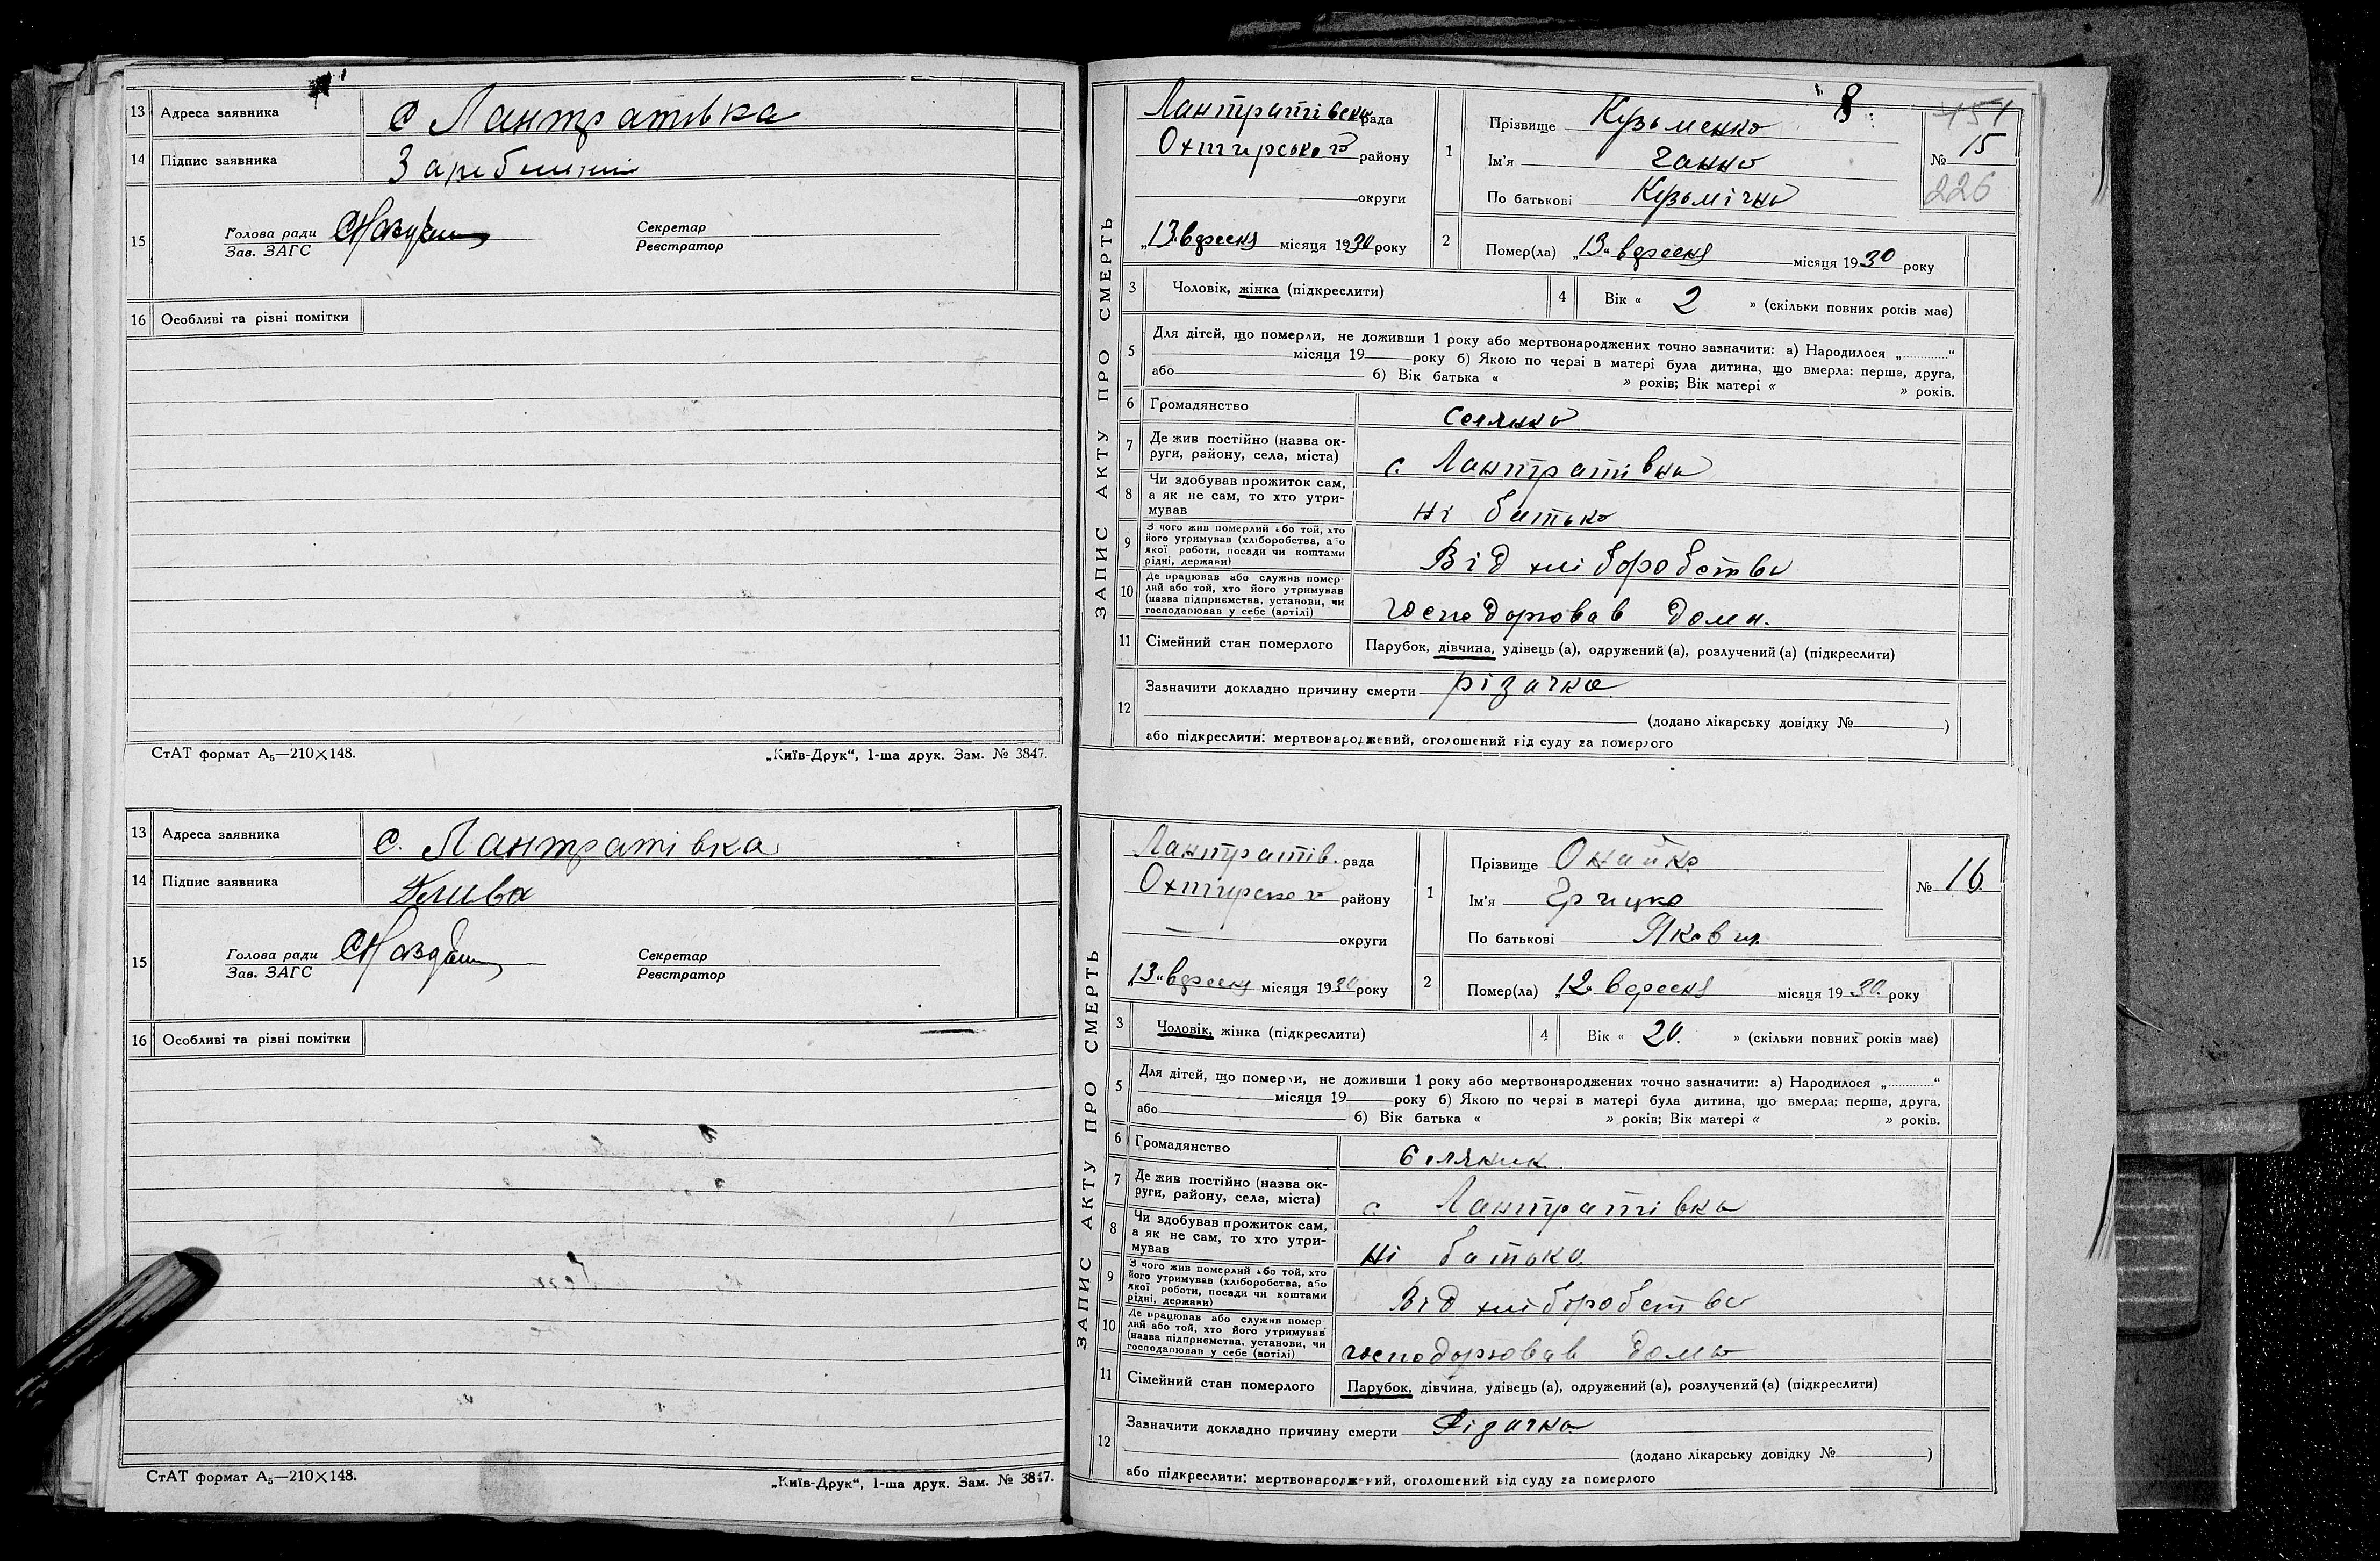 13 Адреса заявника с Лантратівка
14 Підпис заявника
15 Голова ради
Зав. ЗАГС
Секретар
Реєстратор
16 Особливі та різні помітки
СтАТ формат А5—210×148.
„Київ-Друк“, 1-ша друк. Зам. № 3847.
13 Адреса заявника с. Лантратівка
14 Підпис заявника
15 Голова ради
Зав. ЗАГС
Секретар
Реєстратор
16 Особливі та різні помітки
СтАТ формат А5—210×148.
„Київ-Друк“, 1-ша друк. Зам. № 3847.
8
151
ЗАПИС АКТУ ПРО СМЕРТЬ
Лантратівська рада
Охтирського району
округи
„13“ вересня місяця 1930 року
1 Прізвище Кузьменко
Ім'я Ганна
По батькові Кузьмічна
№ 15
226
2 Помер(ла) „13“ вересня місяця 1930 року
3 Чоловік, жінка (підкреслити)
4 Вік « 2 » (скільки повних років має)
5 Для дітей, що померли, не доживши 1 року або мертвонароджених точно зазначити: а) Народилося „ “
місяця 19 року б) Якою по черзі в матері була дитина, що вмерла: перша, друга,
або б) Вік батька « » років; Вік матері « » років.
6 Громадянство селянка
7 Де жив постійно (назва ок-
руги, району, села, міста) с. Лантратівка
8 Чи здобував прожиток сам,
а як не сам, то хто утри-
мував ні батько
9 З чого жив померлий або той, хто
його утримував (хліборобства, або
якої роботи, посади чи коштами
рідні, держави) Від хліборобства
10 Де працював або служив помер-
лий або той, хто його утримував
(назва підприємства, установи, чи
господарював у себе (артілі) господорював дома.
11 Сімейний стан померлого Парубок, дівчина, удівець (а), одружений (а), розлучений (а) (підкреслити)
12 Зазначити докладно причину смерти різачка
(додано лікарську довідку № )
або підкреслити: мертвонароджений, оголошений від суду за померлого
ЗАПИС АКТУ ПРО СМЕРТЬ
Лантратів. рада
Охтирського району
округи
„13“ вересня місяця 1930 року
1 Прізвище Онайко
Ім'я Грицко
По батькові Яков
№ 16
2 Помер(ла) „12“ вересня місяця 1930 року
3 Чоловік, жінка (підкреслити)
4 Вік « 20. » (скільки повних років має)
5 Для дітей, що померли, не доживши 1 року або мертвонароджених точно зазначити: а) Народилося „ “
місяця 19 року б) Якою по черзі в матері була дитина, що вмерла: перша, друга,
або б) Вік батька « » років; Вік матері « » років.
6 Громадянство селяник
7 Де жив постійно (назва ок-
руги, району, села, міста) с Лантратівка
8 Чи здобував прожиток сам,
а як не сам, то хто утри-
мував ні батько
9 З чого жив померлий або той, хто
його утримував (хліборобства, або
якої роботи, посади чи коштами
рідні, держави) Від хліборобства
10 Де працював або служив помер-
лий або той, хто його утримував
(назва підприємства, установи, чи
господарював у себе (артілі) господорював дома
11 Сімейний стан померлого Парубок, дівчина, удівець (а), одружений (а), розлучений (а) (підкреслити)
12 Зазначити докладно причину смерти Різачка
(додано лікарську довідку № )
або підкреслити: мертвонароджений, оголошений від суду за померлого